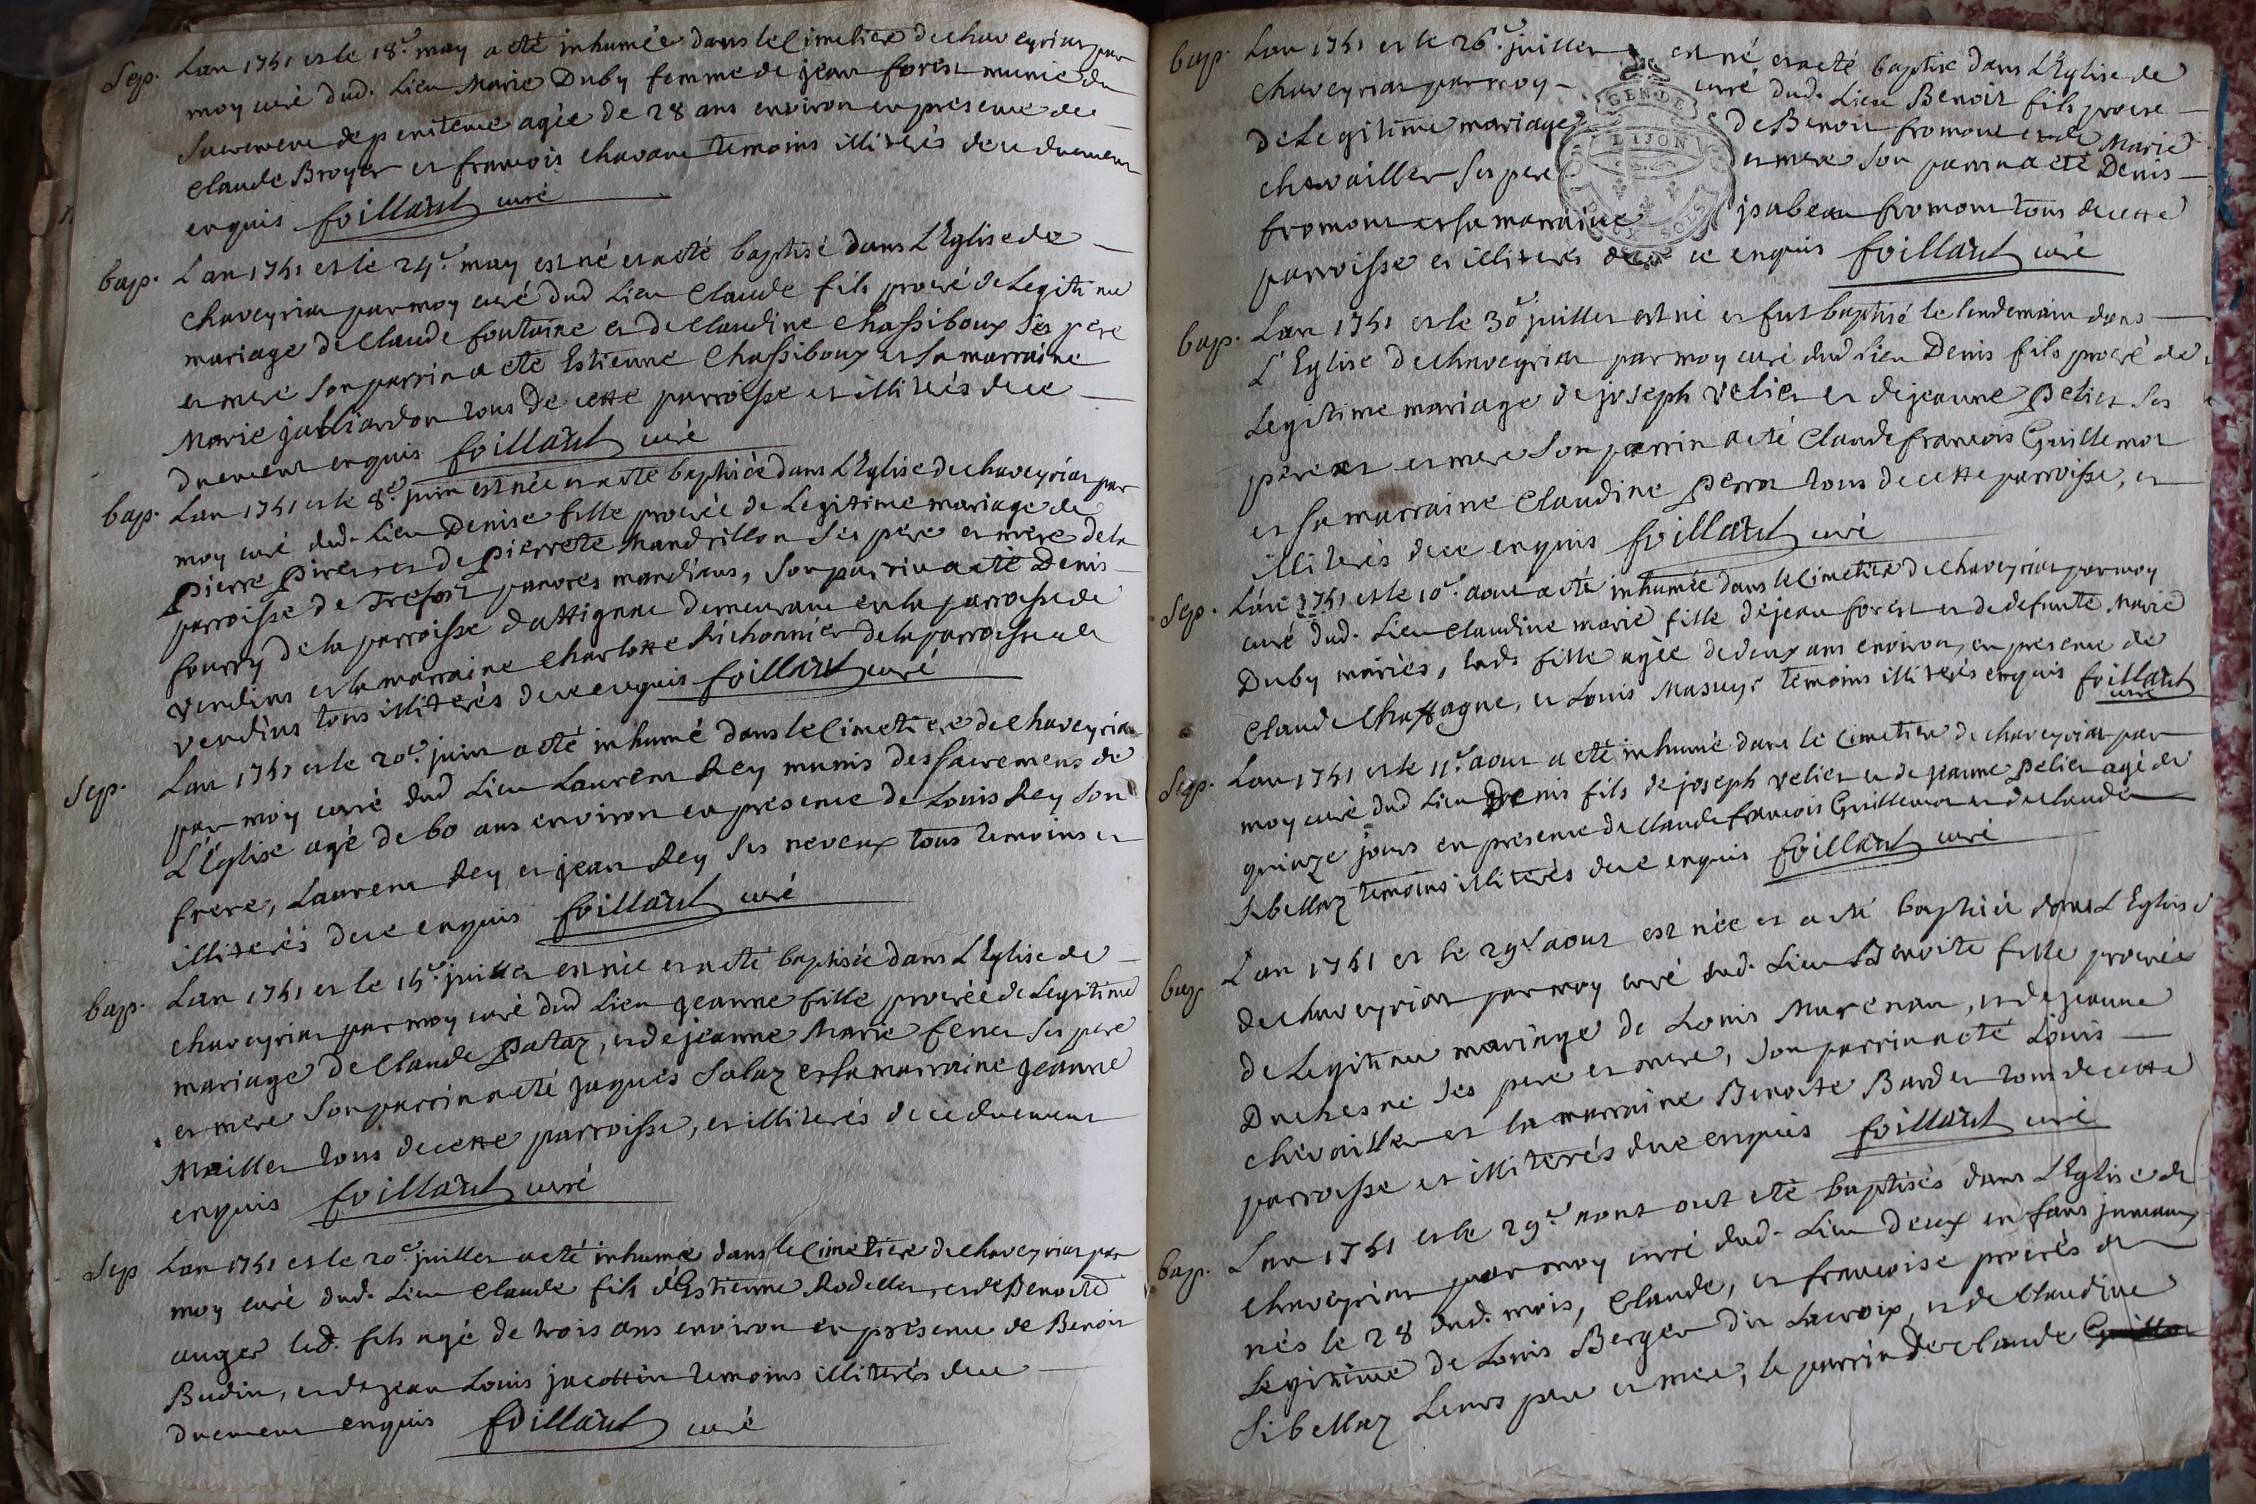 Sep. Lan 1751 et le 18e. may a eté inhumée dans le Cimetiere de chaveyriat par
moy curé dud. Lieu Marie Duby femme de jean forest munie du
Sacrement de penitence agée de 28 ans environ en presence de
Claude Broyer et francois chavant temoins illiterés de ce duement
enquis foillard curé
bap. Lan 1751 et le 24e. may est né et a eté baptisé dans L'Eglise de
chaveyriat par moy curé dud Lieu Claude fils procréé de Legitime
mariage de Claude fontaine et de Claudine Chassiboux Ses pere
et mere Son parrin a eté Estienne Chassiboux et Sa marraine
Marie julliardon tous de cette parroisse et illiterés de ce
duement enquis foillard curé
bap. Lan 1751 et le 8e. juin est née et a eté baptisée dans L'Eglise de chaveyriat par
moy curé dud. Lieu Denise fille procréée de Legitime mariage de
pierre et de pierrete Mandrillon Ses pere et mere de la
parroisse de Trefort pauvres mandians, Son parrin a eté Denis
fourry de la parroisse d'attignat demeurant en la parroisse de
Vendins et la marraine Charlotte Richonnier de la parroisse de
Vendins tous illiterés de ce enquis foillard curé
Sep. Lan 1751 et le 20e. juin a eté inhumé dans le Cimetiere de chaveyriat
par moy curé dud Lieu Laurent Rey munis des Sacremens de
L'Eglise agé de 60 ans environ en presence de Louis Rey Son
frere, Laurent Rey et jean Rey Ses neveux tous temoins et
illiterés de ce enquis foillard curé
bap. Lan 1751 et le 15e. juillet est née et a eté baptisée dans L'Eglise de
chaveyriat par moy curé dud Lieu jeanne fille procréée de Legitime
mariage de Claude pataz, et de jeanne Marie fenet Ses pere
et mere Son parrin a eté jaques Salaz et Sa marraine jeanne
Maillet tous de cette parroisse, et illiterés de ce duement
enquis foillard curé
Sep Lan 1751 et le 20e. juillet a eté inhumé dans le Cimetiere de chaveyriat par
moy curé dud. Lieu Claude fils d'Estienne Rodellet et de Benoite
auger led. fils agé de trois ans environ en presence de Benoit
Budin, et de jean Louis jacottin temoins illiterés de ce
duement enquis foillard curé
bap. Lan 1751 et le 26e. juillet est né et a eté baptisé dans L'Eglise de
chaveyriat par moy curé dud. Lieu Benoit fils procréé
de Legitime mariage de Benoit fromont et de Marie
chevailler Ses pere et mere Son parrin a eté Denis
fromont et Sa marraine jsabeau fromont tous de cette
parroisse et illiterés de ce enquis foillard curé
GEN. DE
DIJON
DEUX SOLS
bap. Lan 1751 et le 30e juillet est né et fut baptisé le lendemain dans
L'Eglise de chaveyriat par moy curé dud Lieu Denis fils procréé de
Legitime mariage de joseph Veliet et de jeanne peliet Ses
pere et mere Son parrin a eté Claude francois Guillemot
et Sa marraine Claudine perrot tous de cette parroisse, et
illiterés de ce enquis foillard curé
Sep. Lan 1751 et le 10e. aout a eté inhumée dans le Cimetiere de chaveyriat par moy
curé dud. Lieu Claudine marie fille de jean forest et de defunte Marie
Duby mariés, lad. fille agée de deux ans environ, en presence de
Claude Chassagne, et Louis Masuyr temoins illiterés enquis foillard
curé
Sep. Lan 1751 et le 11e. aout a eté inhumé dans le Cimetiere de chaveyriat par
moy curé dud Lieu Denis fils de joseph Veliet et de jeanne peliet agé de
quinze jours en presence de Claude francois Guillemot et de Claude
Sibellaz temoins illiterés de ce enquis foillard curé
bap L'an 1751 et le 29e. aout est née et a eté baptisée dans L'Eglise
de chaveyriat par moy curé dud. Lieu Benoite fille procréée
de Legitime mariage de Louis Murenan, et de jeanne
Duchesne Ses pere et mere, Son parrin a eté Louis
chevailler et la marraine Benoite Bardet tous de cette
parroisse et illiterés de ce enquis foillard curé
bap. Lan 1751 et le 29e. aout ont eté baptisés dans L'Eglise de
chaveyriat par moy curé dud. Lieu deux enfans jumeaux
nés le 28 dud. mois, Claude, et francoise procréés de
Legitime de Louis Berger dit Lacroix, et de Claudine
Sibellaz Leurs pere et mere, le parrin de Claude